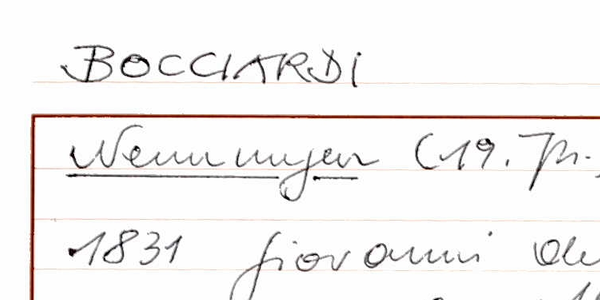 BOCCIARDI
Nennungen (19. Jh.
1831 Giovanni de